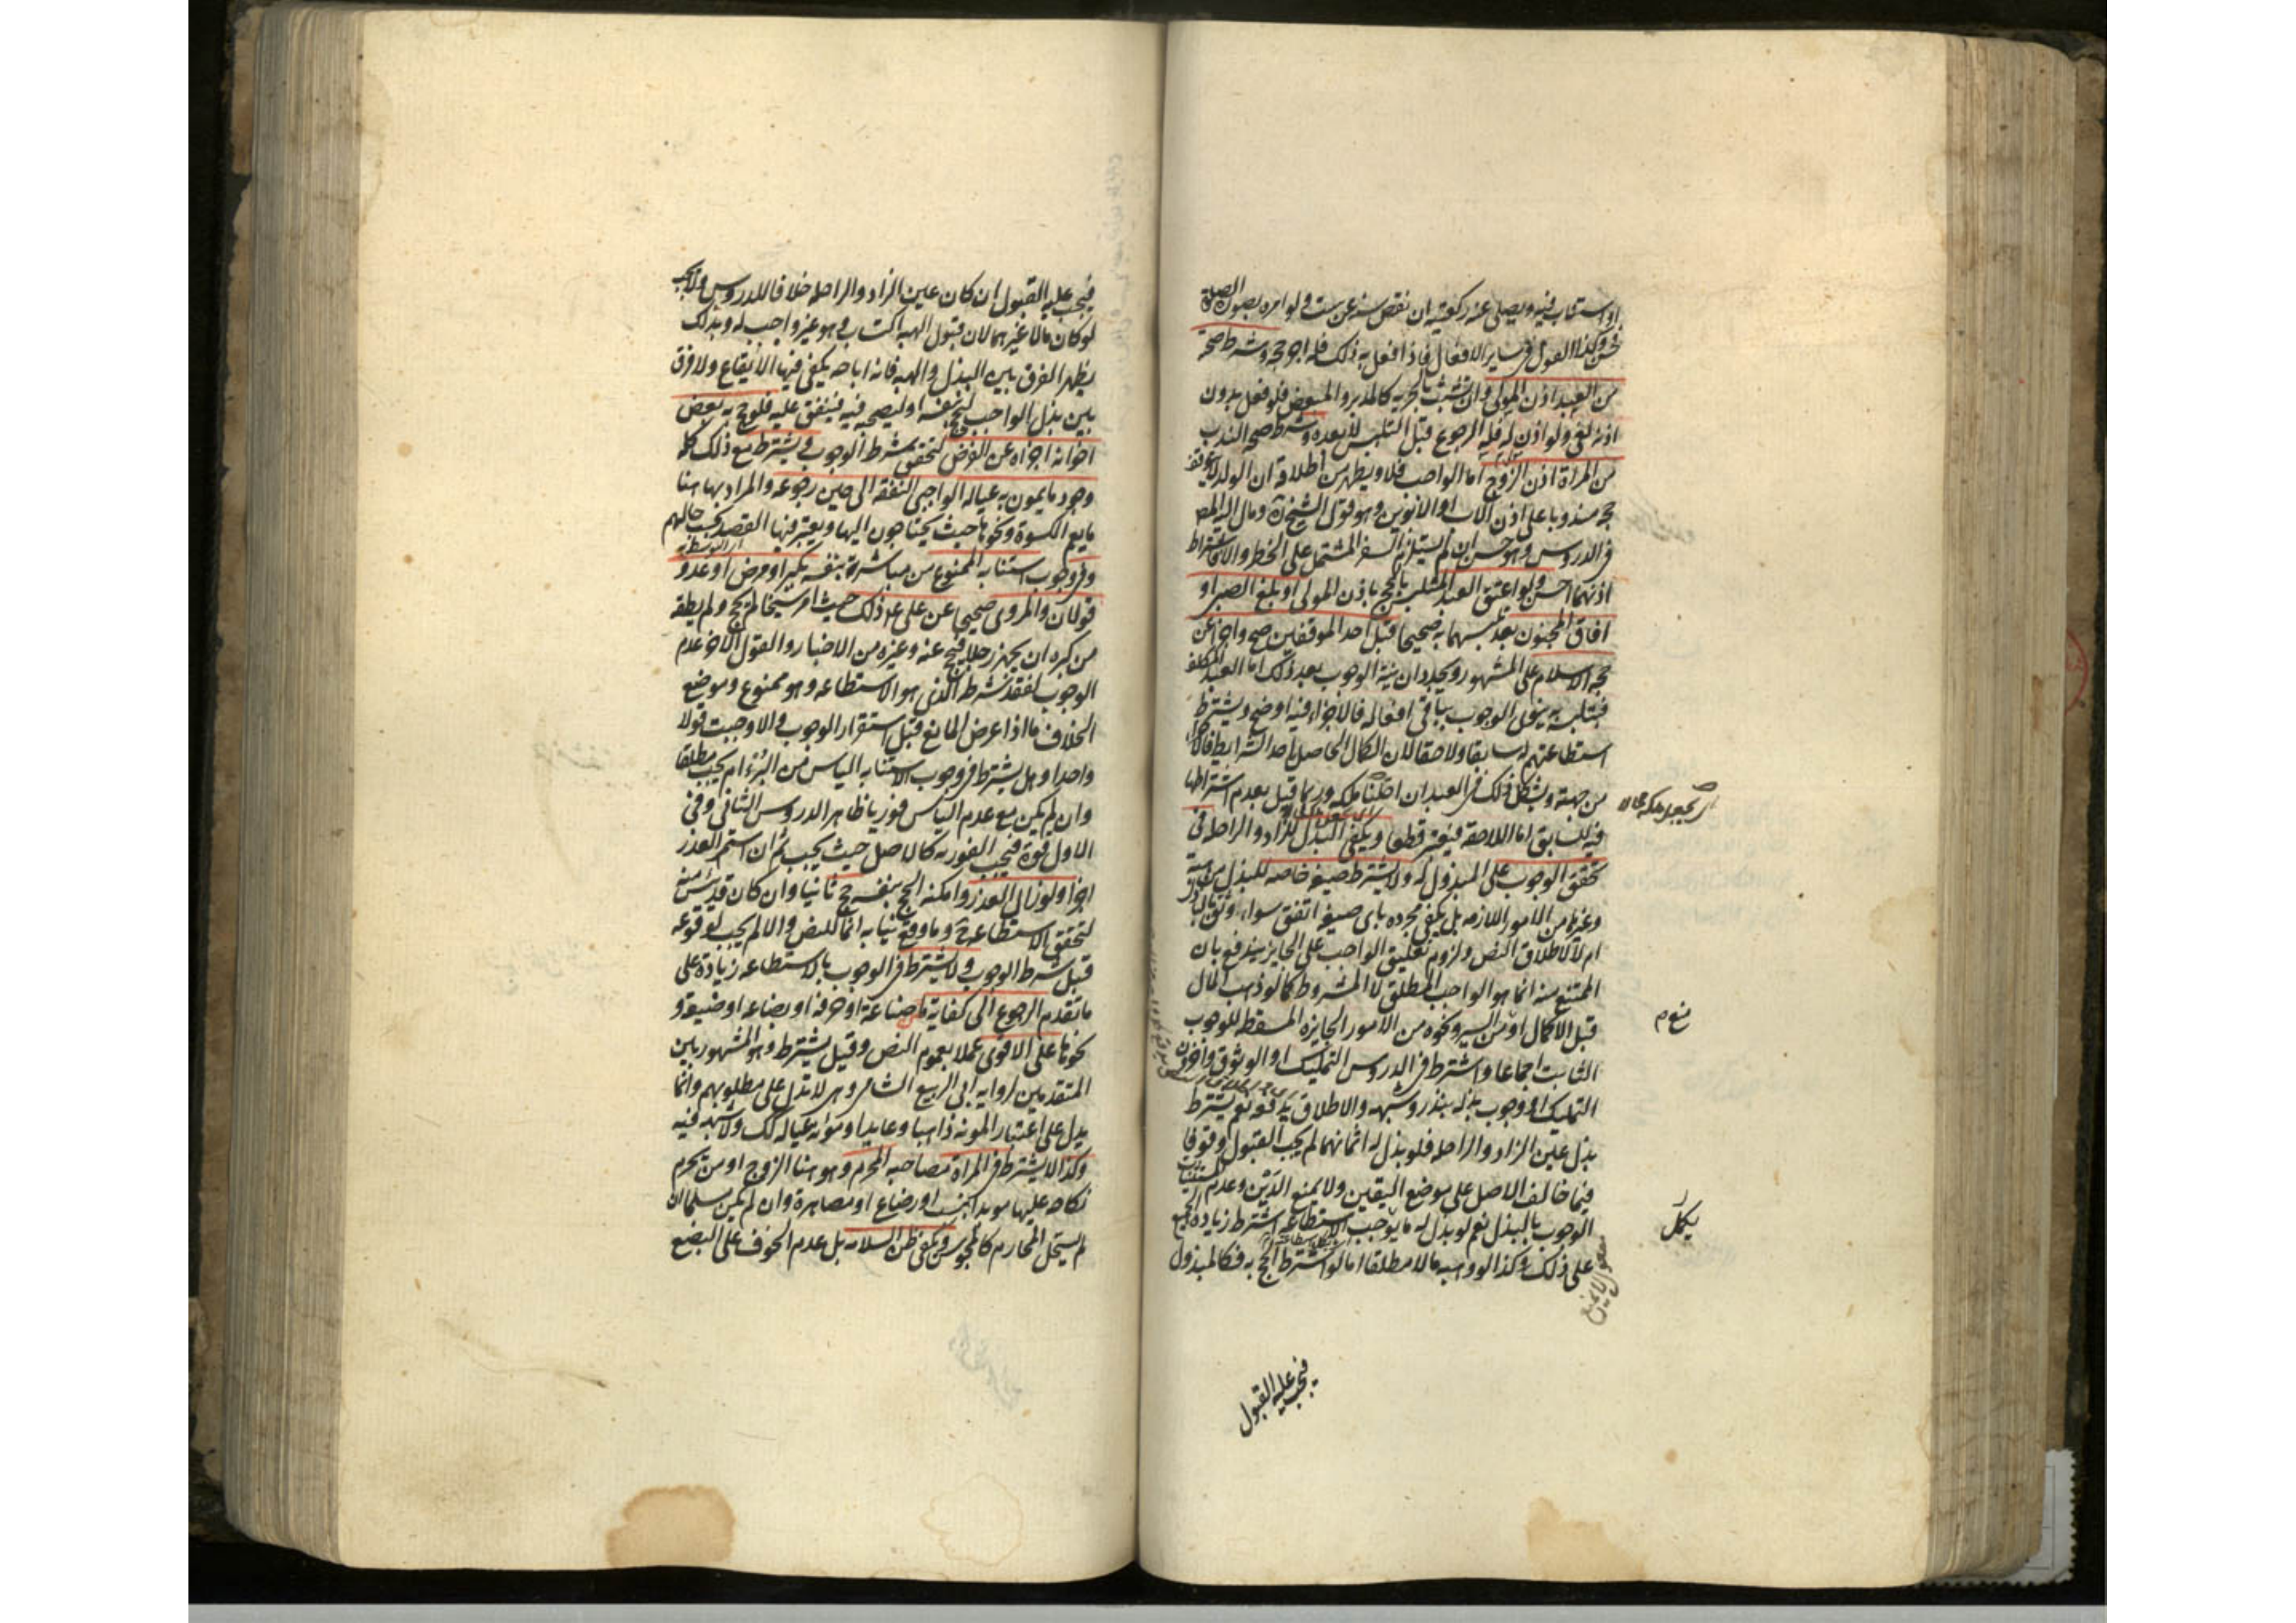 او استناب فيه ويصلى عنه ركعتيه ان نقص سنه عن ست ولو امره بصورة الصلوة
فحسن وكذا القول فى ساير الافعال فاذا فعل به ذلك فله اجر حجه وشرط صحته
من العبد اذن المولى وان تشبث بالحريه كالمدبر والمبعض فلو فعل بدون
اذنه لغى ولو اذن له فله الرجوع قبل التلبس لا بعده وشرط صحة الندب
من المراة اذن الزوج اما الواجب فلا ويظهر من اطلاقه ان الولد لا يتوقف
حجه مندوبا على اذن الاب او الابوين وهو قول الشيخ ره ومال اليه المص
فى الدروس وهو حسن ان لم يستلزم السفر المشتمل على الخطر والا فاشتراط
اذنهما احسن ولو اعتق العبد المتلبس بالحج باذن المولى او بلغ الصبى او
افاق المجنون بعد تلبسهما به صحيحا قبل احد الموقفين صح واجزا عن
حجة الاسلام على المشهور ويجددان نية الوجوب بعد ذلك اما العبد المكلف
فبتلبسه به ينوى الوجوب بباقى افعاله فالاجزاء فيه اوضح ويشترط
استطاعتهم له سابقا ولاحقا لان الكمال الحاصل احد الشرايط فالاجزاء
من جهته ويشكل ذلك فى العبد ان احلنا ملكه وربما قيل بعدم اشتراطها
فيه للسابق اما اللاحق فيعتبر قطعا ويكفى البذل للزاد والراحله فى
تحقق الوجوب على المبذول له ولا يشترط صيغه خاصه للبذل من هبة
وغيرها من الامور اللازمه بل يكفى مجرده باى صيغه اتفق سواء وثق بالباذل
ام لا لاطلاق النص ولزوم تعليق الواجب على الجايز يندفع بان
الممتنع منه انما هو الواجب المطلق لا المشروط كما لو ذهب المال
قبل الاكمال او من السير ونحوه من الامور الجايزه المسقطه للوجوب
الثابت اجماعا واشترط فى الدروس التمليك او الوثوق به واخرون
التمليك او وجوب بذله بنذر وشبهه والاطلاق يدفعه نعم يشترط
بذل عين الزاد والراحله فلو بذل له اثمانهما لم يجب القبول وقوفا
فيما خالف الاصل على موضع اليقين ولا يمنع الدين وعدم المستثنيات
الوجوب بالبذل نعم لو بذل له ما يوجب الاستطاعه اشترط زيادة الجميع
على ذلك وكذا لو وهب مالا مطلقا اما لو اشترط الحج به فكالمبذول
يكمل
فيجب عليه القبول
فيجب عليه القبول ان كان عين الزاد والراحله خلافا للدروس ولا يجب
لو كان مالا غيرهما لان قبول الهبه اكتساب وهو غير واجب له وبذلك
يظهر الفرق بين البذل والهبه فانه اباحه يكفى فيها الايقاع ولا فرق
بين بذل الواجب ليحج بنفسه او ليصحبه فيه فينفق عليه فلو حج به بعض
اخوانه اجزاه عن الفرض لتحقق شرط الوجوب ويشترط مع ذلك كله
وجود ما يمون به عياله الواجبى النفقه الى حين رجوعه والمراد بها هنا
ما يعم الكسوة ونحوها حيث يحتاجون اليها ويعتبر فيها القصد بحسب حالهم
وفى وجوب استنابه الممنوع من مباشرته بنفسه بكبر او مرض او عدو
قولان والمروى صحيحا عن على ع ذلك حيث امر شيخا لم يحج ولم يطقه
من كبره ان يجهز رجلا فيحج عنه وغيره من الاخبار والقول الاخر عدم
الوجوب لفقد شرطه الذى هو الاستطاعه وهو ممنوع وموضع
الخلاف ما اذا عرض المانع قبل استقرار الوجوب والا وجبت قولا
واحدا وهل يشترط فى وجوب الاستنابه الياس من البرء ام يجب مطلقا
وان لم يكن مع عدم الياس فوريا ظاهر الدروس الثانى وفى
الاول قوة فيجب الفوريه كالاصل حيث يجب ثم ان استمر العذر
اجزا ولو زال العذر وامكنه الحج بنفسه حج ثانيا وان كان قد يئس منه
لتحقق الاستطاعه ح وما وقع نيابه انما للنص والا لم يجب لوقوعه
قبل شرط الوجوب ولا يشترط فى الوجوب بالاستطاعه زيادة على
ما تقدم الرجوع الى كفاية من صناعة او حرفة او بضاعه او ضيعة و
نحوها على الاقوى عملا بعموم النص وقيل يشترط وهو المشهور بين
المتقدمين لرواية ابى الربيع الشامى وهى لا تدل على مطلوبهم وانما
يدل على اعتبار المونه ذاهبا وعايدا ومؤنة عياله كك ولا شبهه فيه
وكذا لا يشترط فى المراة مصاحبه المحرم وهو هنا الزوج او من تحرم
نكاحه عليها موبدا بنسب او رضاع او مصاهرة وان لم يكن مسلما ان
لم يستحل المحارم كالمجوسى ويكفى ظن السلامه بل عدم الخوف على البضع